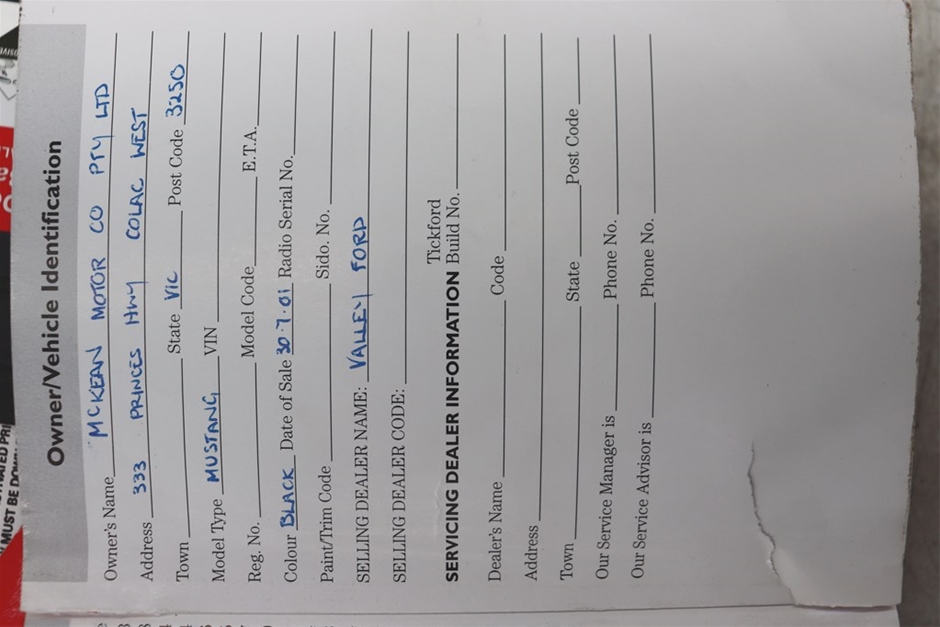 Owner/Vehicle Identification
Owner's Name MCKEAN MOTOR CO PTY LTD
Address 333 PRINCES HWY COLAC WEST
Town State VIC Post Code 3250
Model Type MUSTANG VIN
Reg. No. Model Code E.T.A.
Colour BLACK Date of Sale 30.7.01 Radio Serial No.
Paint/Trim Code Sido. No.
SELLING DEALER NAME: VALLEY FORD
SELLING DEALER CODE:
Tickford
SERVICING DEALER INFORMATION Build No.
Dealer's Name Code
Address
Town State Post Code
Our Service Manager is Phone No.
Our Service Advisor is Phone No.
MUST BE